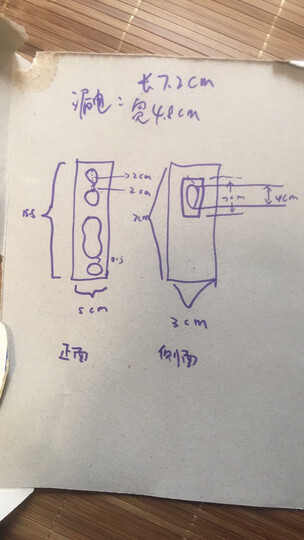 长7.2cm
漏电：宽4.8cm
2cm
2cm
15.5
0.5
5cm
7cm
4cm
3cm
正面
侧面